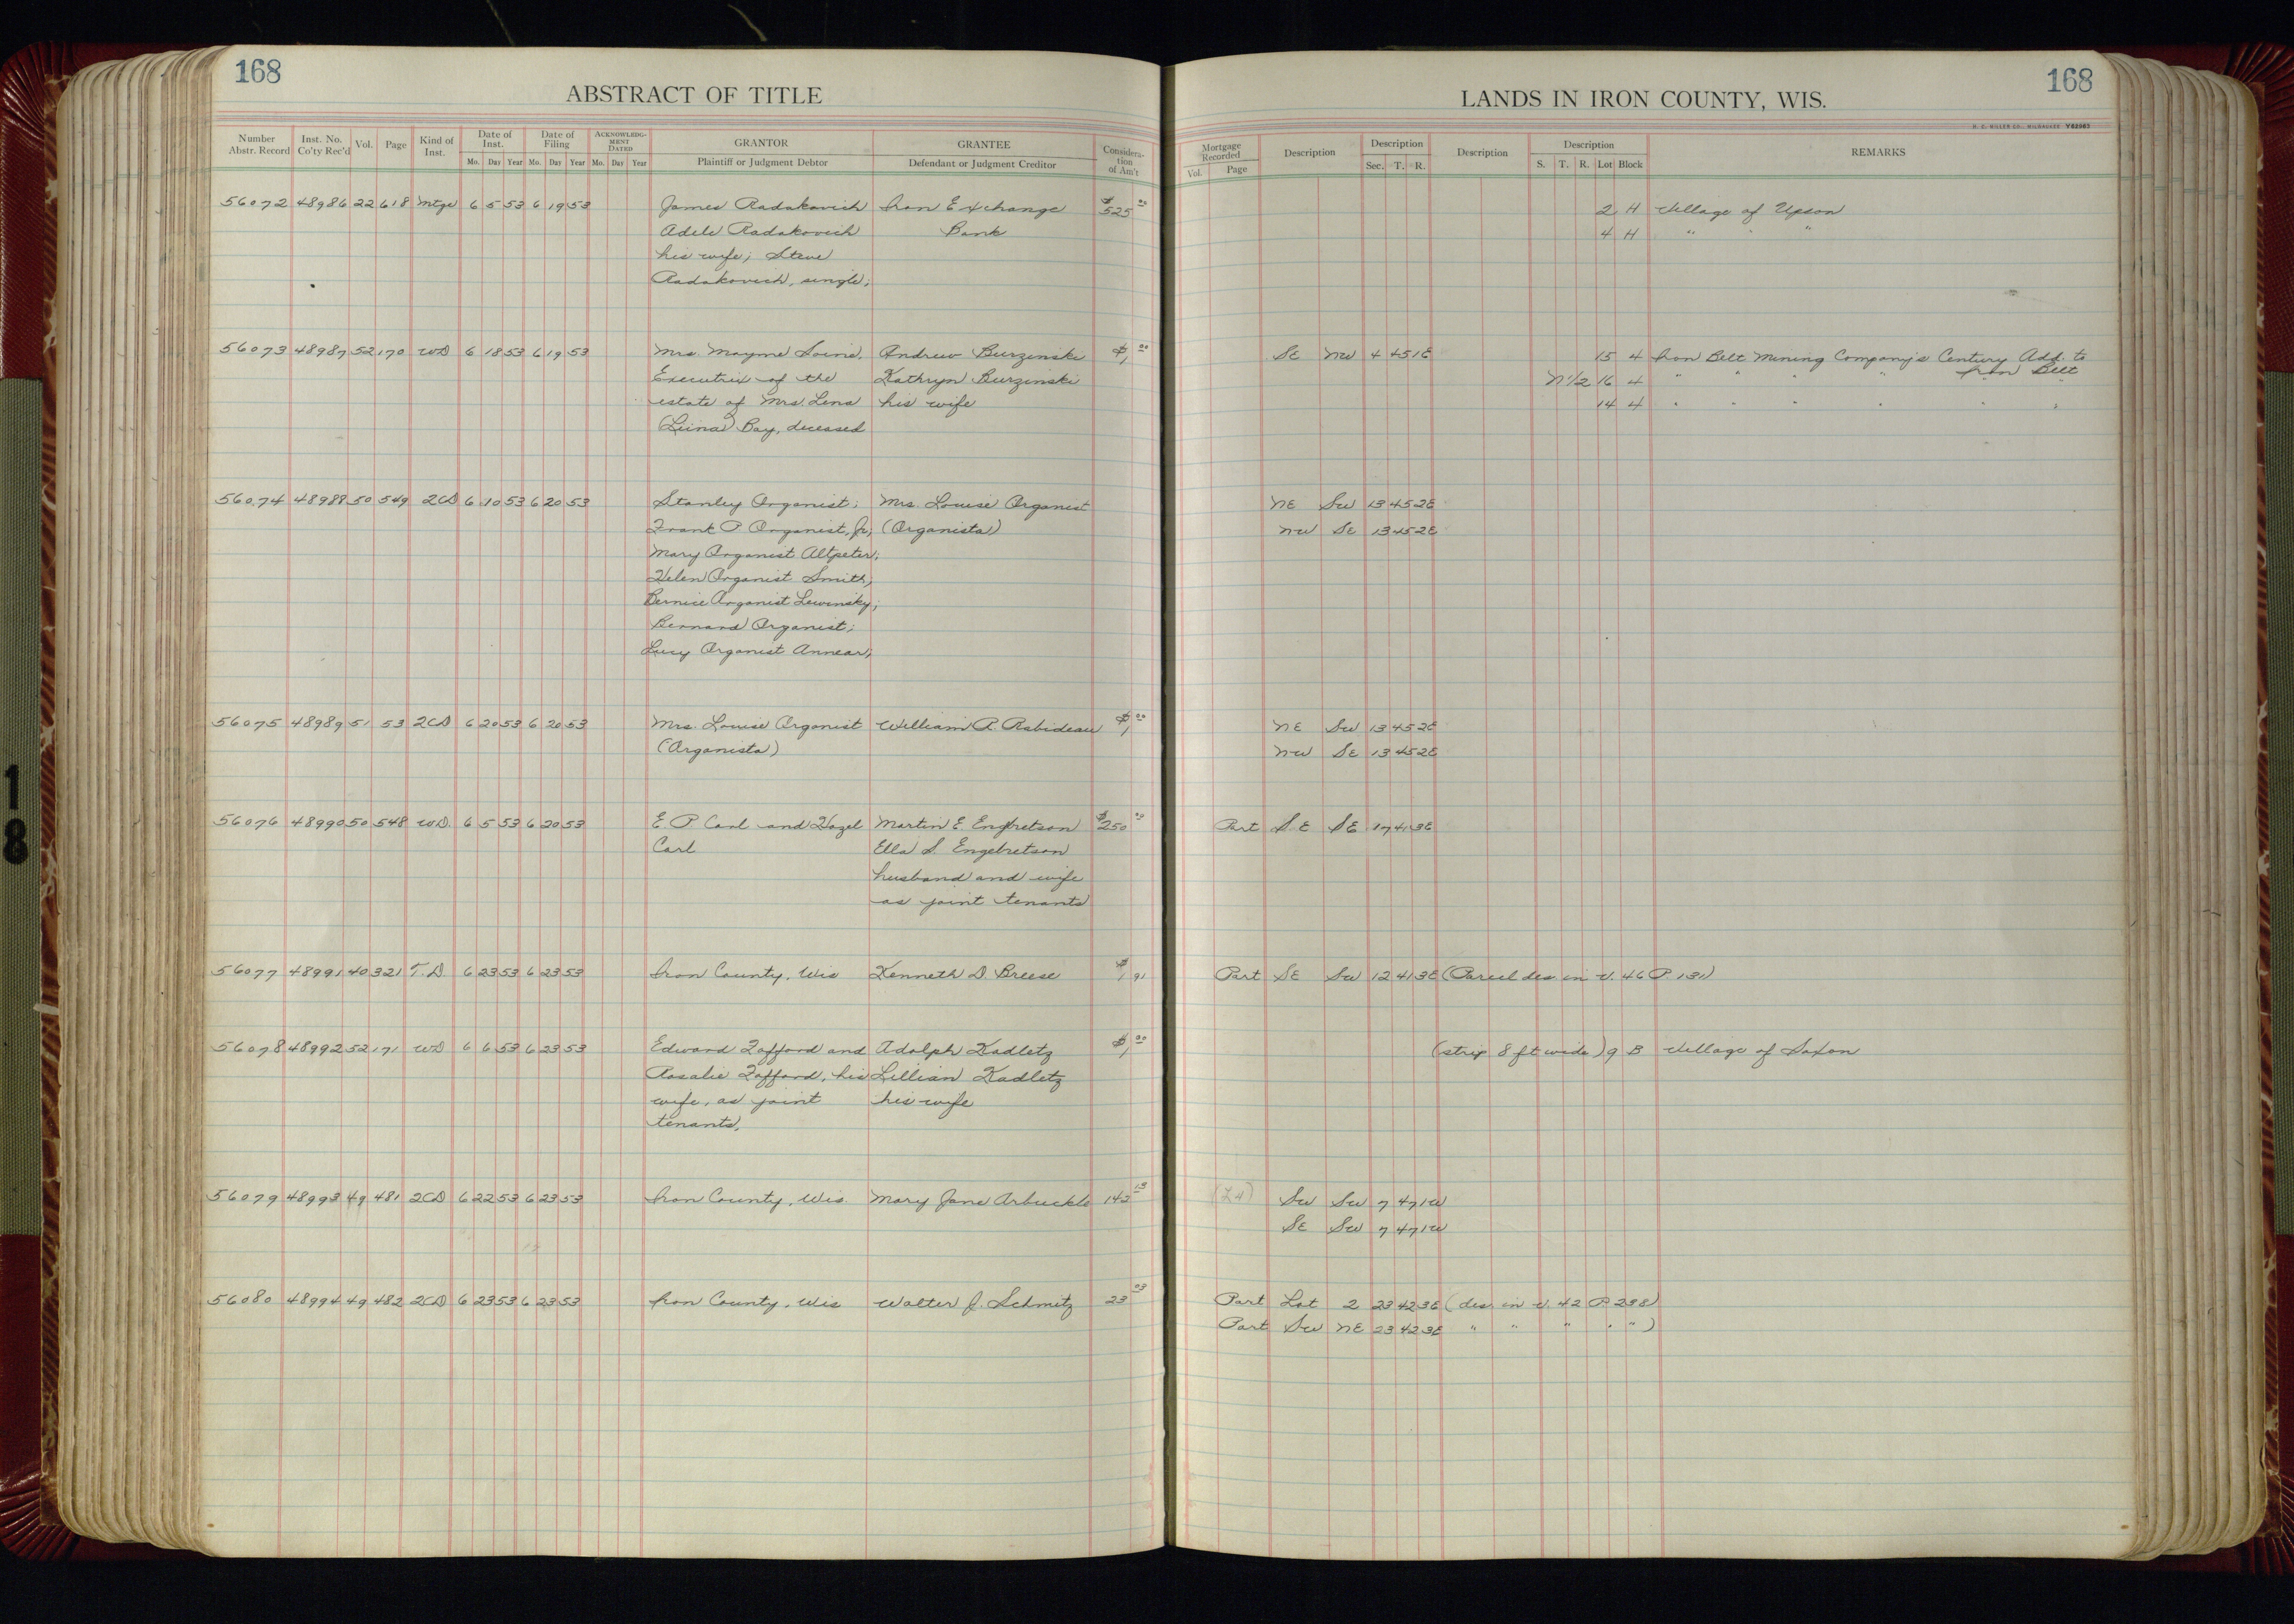 168
ABSTRACT OF TITLE
Number Abstr. Record Inst. No. Co'ty Rec'd Vol. Page Kind of Inst. Date of Inst. Mo. Day Year Date of Filing Mo. Day Year ACKNOWLEDGMENT DATED Mo. Day Year GRANTOR Plaintiff or Judgment Debtor GRANTEE Defendant or Judgment Creditor Consideration of Am't
56072 48986 22 618 Mtge 6 5 53 6 19 53 James Radakovich Iron Exchange $525 00
Adele Radakovich Bank
his wife; Steve
Radakovich, single;
56073 48987 52 170 WD 6 18 53 6 19 53 Mrs. Mayme Soine, Andrew Burzinski $1 00
Executrix of the Kathryn Burzinski
estate of Mrs. Lena his wife
(Leina) Bay, deceased
56074 48988 50 549 2CD 6 10 53 6 20 53 Stanley Organist; Mrs. Louise Organist
Frank P Organist, Jr; (Organista)
Mary Organist Altpeter;
Helen Organist Smith;
Bernice Organist Lewinsky;
Bernard Organist;
Lucy Organist Annear;
56075 48989 51 53 2CD 6 20 53 6 20 53 Mrs. Louise Organist William R. Rabideau $1 00
(Organista)
56076 48990 50 548 WD 6 5 53 6 20 53 E. P Carl and Hazel Martin E. Engbretson $250 00
Carl Ella S. Engebretson
husband and wife
as joint tenants
56077 48991 40 321 T.D. 6 23 53 6 23 53 Iron County, Wis Kenneth D. Breese $1 91
56078 48992 52 171 WD 6 6 53 6 23 53 Edward Zafford and Adolph Kadletz $1 00
Rosalie Zafford, his Lillian Kadletz
wife, as joint his wife
tenants,
56079 48993 49 481 2CD 6 22 53 6 23 53 Iron County, Wis. Mary Jane Arbuckle 142 13
56080 48994 49 482 2CD 6 23 53 6 23 53 Iron County, Wis Walter J. Schmitz 23 03
168
LANDS IN IRON COUNTY, WIS.
H. C. MILLER CO., MILWAUKEE Y62983
Mortgage Recorded Vol. Page Description Description Sec. T. R. Description Description S. T. R. Lot Block REMARKS
2 H Village of Upson
4 H " " "
SE NW 4 45 1E 15 4 Iron Belt Mining Company's Century Add. to
N1/2 16 4 " " " " Iron Belt
14 4 " " " " " "
NE SW 13 45 2E
NW SE 13 45 2E
NE SW 13 45 2E
NW SE 13 45 2E
Part SE SE 17 41 3E
Part SE SW 12 41 3E (Parcel des in V. 46 P. 131)
(strip 8 ft wide) 9 B Village of Saxon
SW SW 7 47 1W
SE SW 7 47 1W
Part Lot 2 23 42 3E (des in V. 42 P 238)
Part SW NE 23 42 3E " " " " ")
18